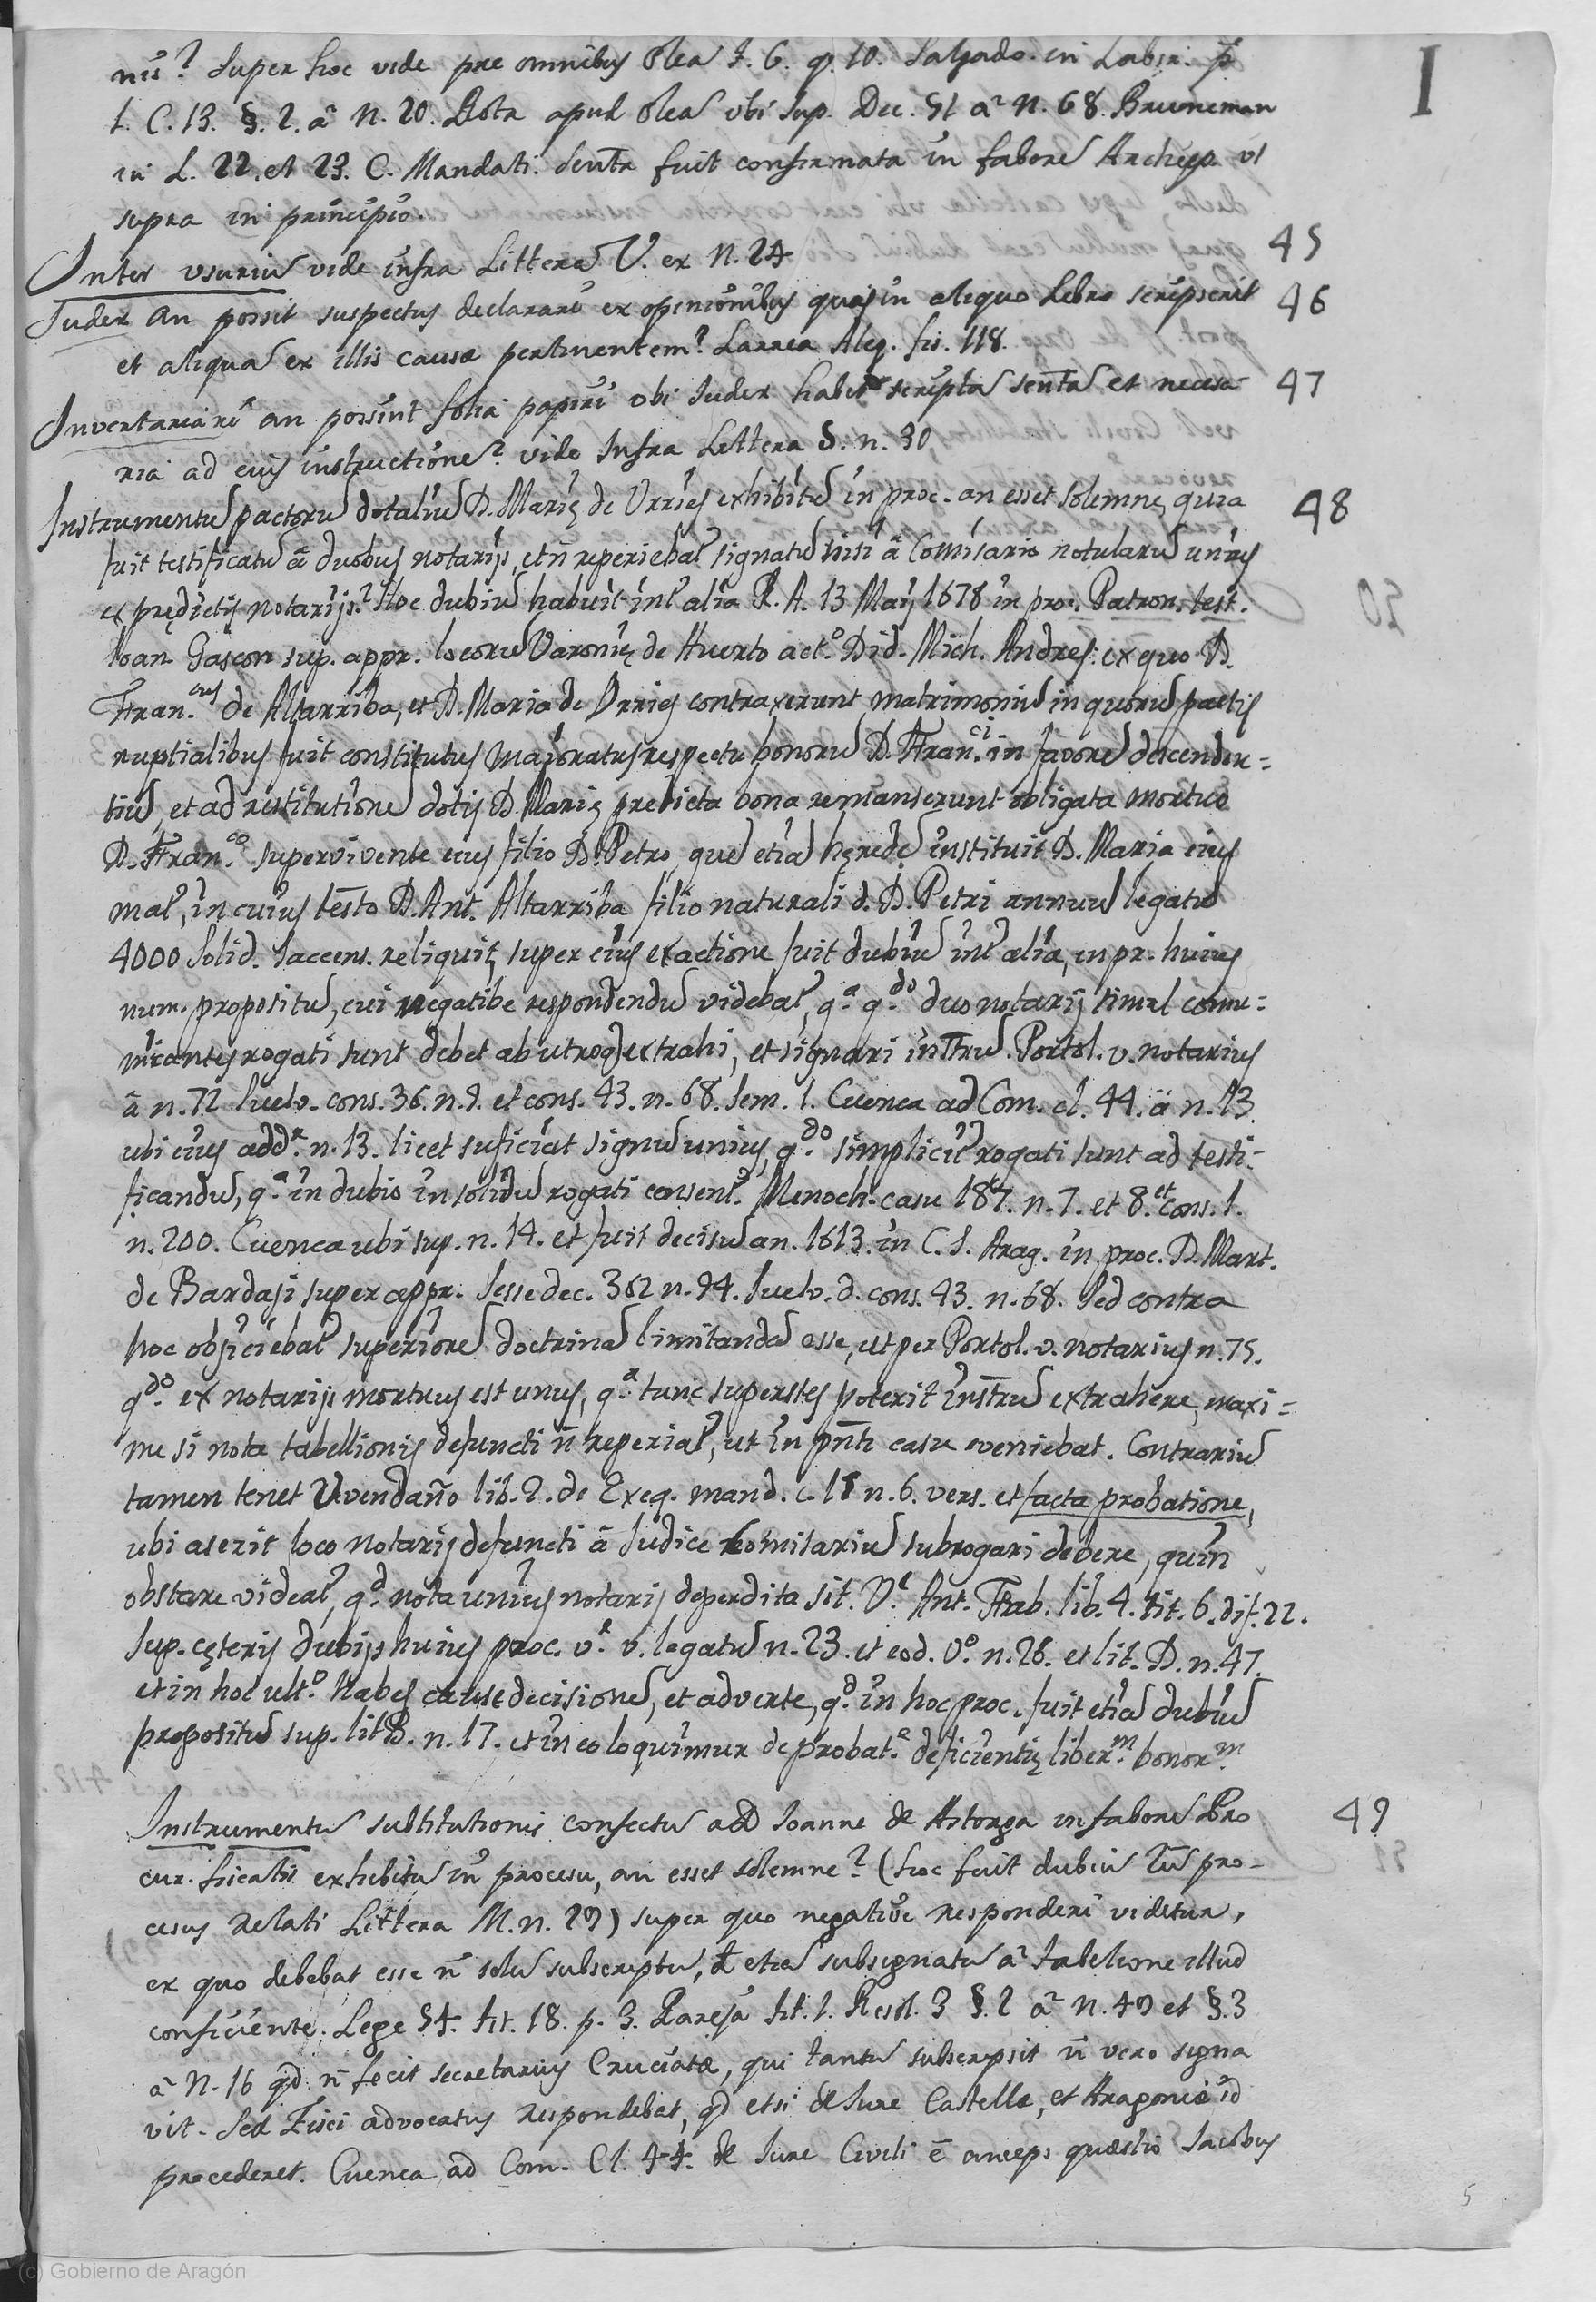 I
nis? Super hoc vide pre omnibus Olea t. 6. q. 10. Salgado in Labir. p.
1. C. 13. §. 2. à N. 20. Rota apud Olea ubi sup. Dec. 51 à N. 68. Bruneman
in L. 22. et 23. C. Mandati. Sentã fuit confirmata in fabore Archiep. ut
supra in principio.
Inter usuriũ vide infra Littera U. ex N. 24 45
Iudex an possit suspectus declarari ex opinionibus quas in aliquo Libro scripserit 46
et aliquã ex illis causæ pertinentem? Larrea Aleg. fis. 118.
Inventariari an possint folia papiri ubi Iudex habet scripta sentã et necesa- 47
ria ad eius instructione? vide Infra Littera S. n. 30
Instrumentũ pactorũ dotaliũ D. Marię de Urries exhibitũ in proc. an esset solemne, quia 48
fuit testificatũ â duobus notarijs, et ñ reperiebať signatũ nisi â Comisario notularũ unius
ex prędictis notarijs? Hoc dubiũ habuit inť alia R. A. 13 Maij 1678 in proc. Patron. test.
Ioan Gascon sup. appr. locorũ Varonię de Huerto act.º Did. Mich. Andres: ex quo D.
Fran.cus de Altarriba, et D. Maria de Urries contraxerunt matrimoniũ in quorũ pactis
nuptialibus fuit constitutus Majoratus respectu bonorũ D. Fran.ci in favorẽ descenden=
tiũ, et ad restitutionẽ dotis D. Marię predicta bona remanserunt obligata mortuo
D. Fran.co supervivente eius filio D. Petro, quẽ etiã hęredẽ instituit D. Maria eius
mať, in cuius testo D. Ant. Altarriba filio naturali d. D. Petri annuũ legatũ
4000 Solid. Iaccens. reliquit, super eius exactione fuit dubiũ inť alia, in pr. huius
num. propositũ, cui negatibe respondendũ videbať, q.a q.do duo notarij simul comu=
nicantes rogati sunt debet ab utroq extrahi, et signari instrũ. Portol. v. notarius
â n. 72 Suelv. cons. 36. n. 9. et cons. 43. n. 68. sem. 1. Cuenca ad Com. cl. 44. â n. 13.
ubi eius add.r n. 13. licet suficiat signũ unius, q.do simpliciť rogati sunt ad testi-
ficandũ, q.a in dubio in solidũ rogati censenť. Menoch. casu 187. n. 7. et 8. et cons. 1.
n. 200. Cuenca ubi sup. n. 14. et fuit decisũ an. 1613. in C. I. Arag. in proc. D. Mart.
de Bardaji super appr. Sesse dec. 362 n. 94. Suelv. d. cons. 43. n. 68. Sed contra
hoc obijciebať superiorẽ doctrinã limitandã esse, ut per Portol. v. notarius n. 75.
q.do ex notarijs mortuus est unus, q.a tunc superstes poterit instrũ extrahere, maxi=
me si nota tabellionis defuncti ñ reperiať, ut in pñti casu eveniebat. Contrariũ
tamen tenet Avendaño lib. 2. de Exeq. mand. c. 15 n. 6. vers. et facta probatione,
ubi aserit loco notarij defuncti â Iudice comisariũ subrogari debere, quin
obstare videať, q.d nota unius notarij deperdita sit. V.e Ant. Fab. lib. 4. tit. 6. dif. 22.
Sup. cęteris dubijs huius proc. v.e v. legatũ n. 23. et eod. V.o n. 28. et lit. D. n. 47.
et in hoc ult.º habes causę decisionẽ, et adverte, q.d in hoc proc. fuit etiã dubiũ
propositũ sup. lit B. n. 17. et in eo loquimur de probat.e deficientię liber.m bonor.m
Instrumentũ subtitutionis confectũ a D. Ioanne de Astorga in faborẽ Pro 49
cur. fiscalis exhibitũ in procesu, an esset solemne? (hoc fuit dubiũ 2ũ pro-
cesus relati Littera M. n. 29) super quo negative responderi videtur,
ex quo debebat esse ñ solũ subscriptũ, sed etiã subsignatũ à tabelione illud
conficiente. Lege 54. tit. 18. p. 3. Pareja tit. 1. Resol. 3 §. 2 à N. 49 et §. 3
à N. 16 qd ñ fecit secretarius Cruciatæ, qui tantũ subscripsit ñ vero signa
vit. Sed Fisci advocatus respondebat, qd etsi de Iure Castellæ, et Aragoniæ id
procederet. Cuenca ad Com. Cl. 44. de Iure Civili ẽ anceps quæstio Iacobus
5
(c) Gobierno de Aragón